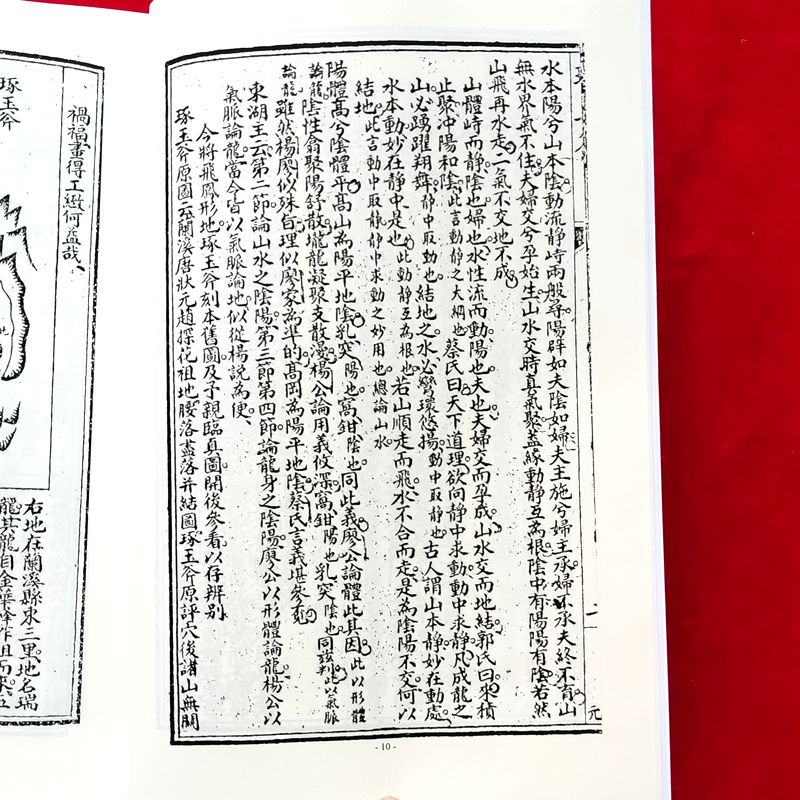 水本陽兮山本陰動流靜峙兩般尋陽辟如夫陰如婦夫主施兮婦主承婦不承夫終不育山
無水界氣不住夫婦交兮孕始生山水交時真氣聚蓋緣動靜互為根陰中有陽陽有陰若然
山飛再水走二氣不交地不成
山體峙而靜陰也婦也水性流而動陽也夫也夫婦交而孕成山水交而地結郭氏曰來積
止聚冲陽和陰此言動靜之大綱也蔡氏曰天下道理欲向靜中求動動中求靜凡成龍之
山必踴躍翔舞靜中取動也結地之水必彎環悠揚動中取靜也古人謂山本靜妙在動處
水本動妙在靜中是也此動靜互為根也若山順走而飛水不合而走是為陰陽不交何以
結地此言動中取靜靜中求動之妙用也總論山水
陽體高兮陰體平高山為陽平地陰乳突陽也窩鉗陰也同此義廖公論體此其因此以形體
論龍陰性翕聚陽舒散壠龍凝聚支散漫楊公論用義攸深窩鉗陽也乳突陰也同茲判此以氣脈
論龍雖然楊廖似殊自理似廖家為準的高岡為陽平地陰蔡氏言義堪參互
東湖主云第二節論山水之陰陽第三節第四節論龍身之陰陽廖公以形體論龍楊公以
氣脈論龍當今皆以氣脈論地似從楊說為便
今將飛鳳形地琢玉斧刻本舊圖及子親臨真圖開後參看以存辨別
琢玉斧原圖云蘭溪唐狀元趙探花祖地腰落盡落并結圖琢玉斧原評穴後諸山無關
二
元
- 10 -
琢玉斧
禍福畫得工緻何益哉
右地在蘭溪縣東三里地名瑞
龍其龍自金華峰作祖而來